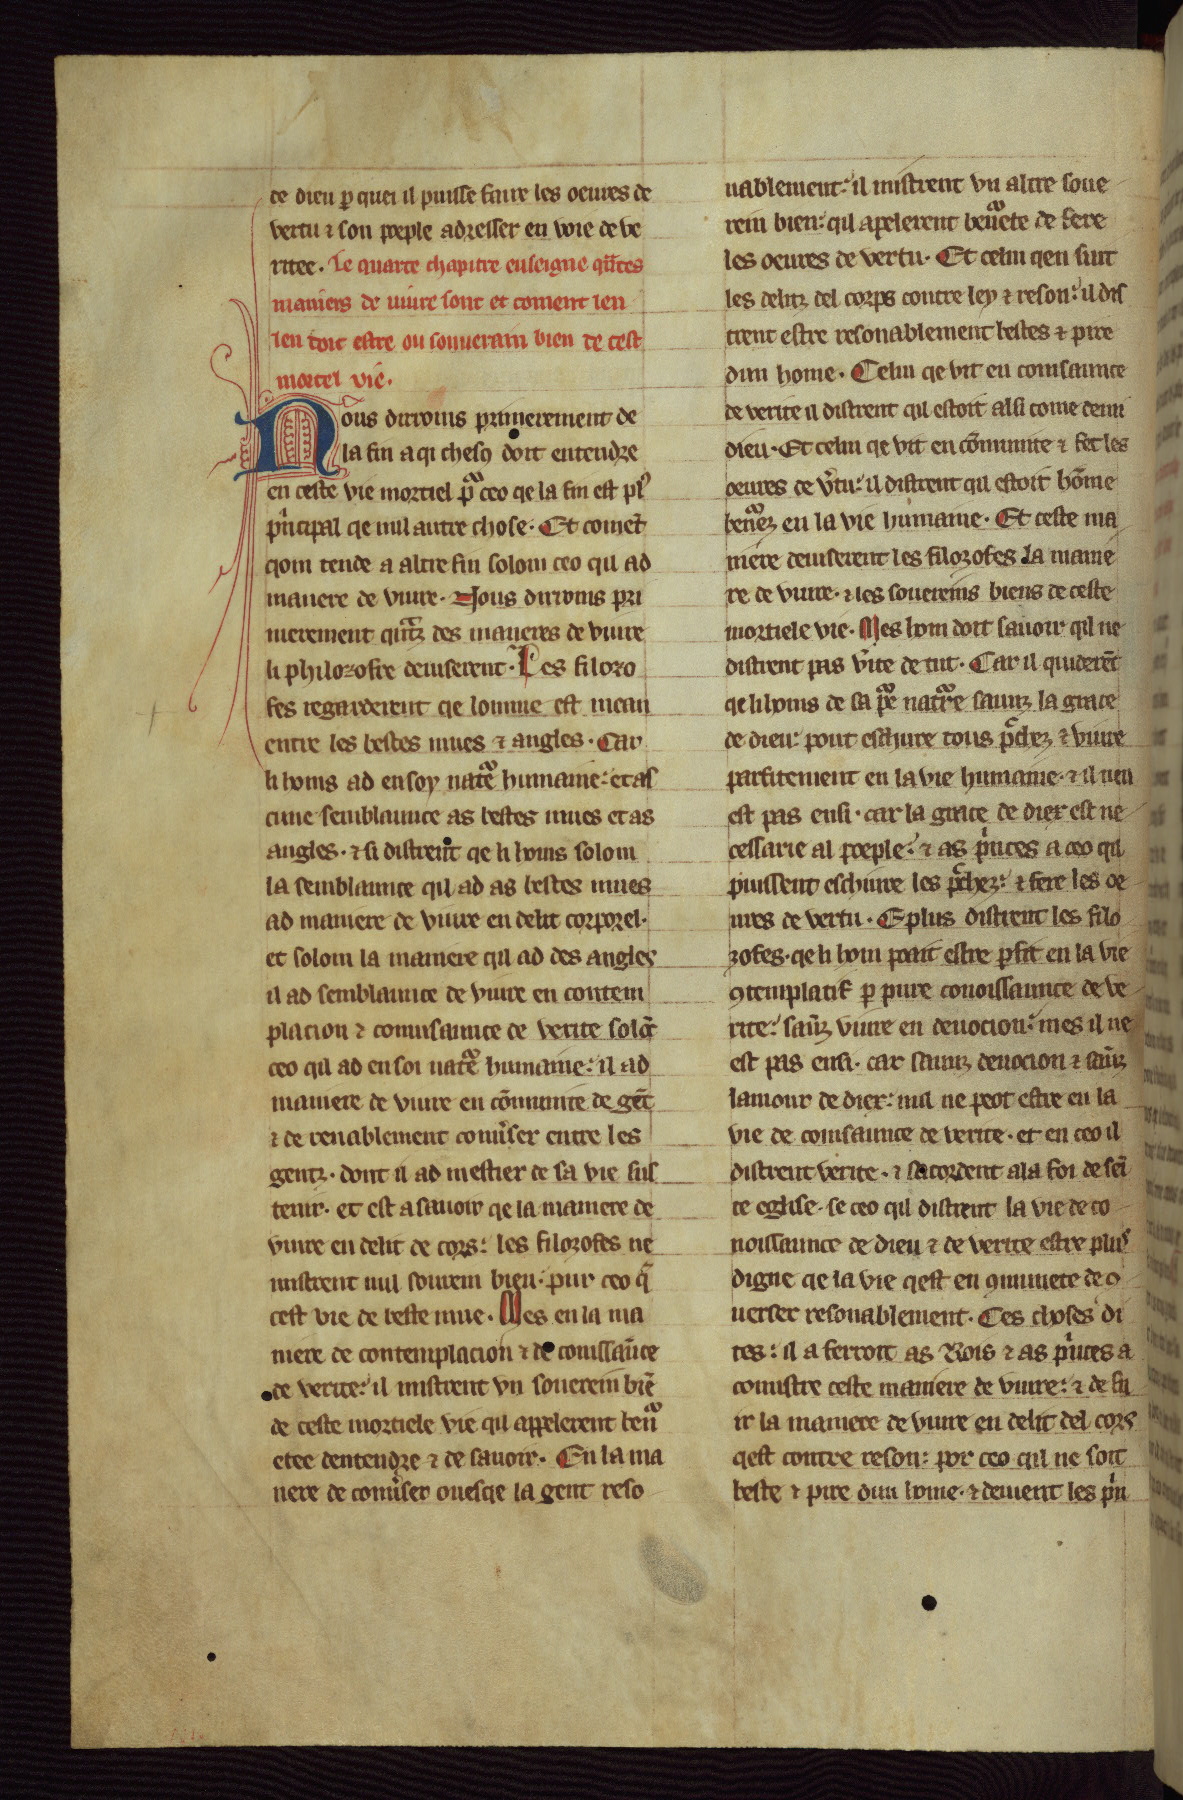 de dieu p quei il puisse faire les oeures de
vertu ⁊ son poeple adresser en voie de ve
ritee. Le quarte chapitre enseigne qͣntes
maniers de uiure sont et coment len
len doit estre ou souuerain bien de cest
mortel vie.
Nous dirroms primerement de
la fin a qi chescͫ doit entendre
en ceste vie mortiel pͣ ceo qe la fin est plꝰ
pͥncipal qe nul autre chose. Et comēt
qom tende a altre fin solom ceo qil ad
manere de viure. Nous dirroms pri
merement qͣntz des maneres de viure
li philozofre deuiserent. Les filozo
fes regarderent qe lomme est mean
entre les bestes mues ⁊ angles. Car
li homs ad en soy natͣe humaine: et as
cune semblaunce as bestes mues et as
angles. ⁊ si distrent qe li homs solom
la semblaunce qil ad as bestes mues
ad maniere de viure en delit corporel.
et solom la maniere qil ad des angles
il ad semblaunce de viure en contem
placion ⁊ conuisaunce de verite solōc
ceo qil ad en soi natͣe humaine: il ad
maniere de viure en cōmunite de gēt
⁊ de renablement conuͥser entre les
gentz. dont il ad mestier de sa vie sus
tenir. et est a sauoir qe la maniere de
viure en delit de cors: les filozofes ne
mistrent nul souein bien. pur ceo q̄
cest vie de beste mue. Mes en la ma
niere de contemplacion ⁊ de conissaūce
de verite: il mistrent vn souerein biē
de ceste mortiele vie qil appelerent benͣ
etee dentendre ⁊ de sauoir. En la ma
nere de conuͥser ouesqe la gent reso
nablement: il mistrent vn altre soue
rein bien: qil apelerent benͣete de fere
les oeures de vertu. Et celui qen suit
les delitz del corps contre ley ⁊ reson: il dis
trent estre resonablement bestes ⁊ pire
dun home. Celui qe vit en conisaunce
de verite il distrent qil estoit alsi come demi
dieu. Et celui qe vit en cōmunite ⁊ fet les
oeures de vͥtu: il distrent qil estoit hōme
benͣez en la vie humaine. Et ceste ma
niere deuiserent les filozofes la manie
re de viure. ⁊ les souereins biens de ceste
mortiele vie. Mes hom doit sauoir qil ne
distrent pas vͥite de tut. Car il quiderēt
qe li homs de sa pͣe natͣre saunz la grace
de dieu: pout eschure tous pͨchez ⁊ viure
parfitement en la vie humaine. ⁊ il nen
est pas ensi. car la grace de dieu est ne
cessarie al poeple: ⁊ as pͥnces a ceo qil
puissent eschure les pͨchez: ⁊ fere les oe
ures de vertu. E plus distrent les filo
zofes. qe li hom poait estre pfit en la vie
ꝯtemplatif p pure conoissaunce de ve
rite: saūz viure en deuocion: mes il ne
est pas ensi. car saunz deuocion ⁊ saūz
lamour de dieu: nul ne peot estre en la
vie de conisaunce de verite. et en ceo il
distrent verite. ⁊ sacordent a la foi de sei
te eglise. se ceo qil distrent la vie de co
noissaunce de dieu ⁊ de verite estre plus
digne qe la vie qest en ꝯmunete de ꝯ
uerser resonablement. Ces choses di
tes: il a ferroit as Rois ⁊ as pͥnces a
conustre ceste maniere de viure: ⁊ de fu
ir la maniere de viure en delit del cors
qest contre reson: por ceo qil ne soit
beste ⁊ pire dun home. ⁊ deuient les pͥn